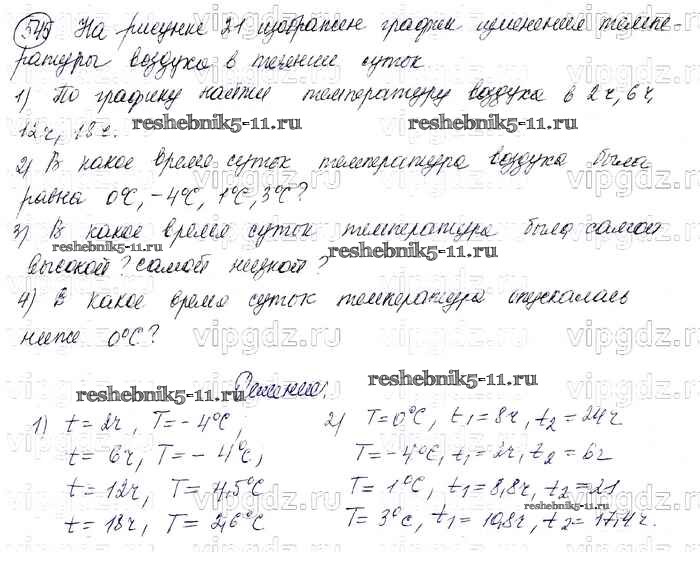 545 На рисунке 21 изображен график изменения темпе-
ратуры воздуха в течении суток
1) По графику найти температуру воздуха в 2ч, 6ч,
12ч, 18ч.
reshebnik5-11.ru reshebnik5-11.ru
2) В какое время суток температура воздуха была
равна 0°С, -4°С, 1°С, 3°С?
3) В какое время суток температура была самой
reshebnik5-11.ru reshebnik5-11.ru
высокой? самой низкой?
4) В какое время суток температура опускалась
ниже 0°С?
vipgdz.ru vipgdz.ru
Решение.
reshebnik5-11.ru reshebnik5-11.ru
1) t=2ч, T=-4°С, 2) T=0°С, t₁=8ч, t₂=24ч
t=6ч, T=-4°С, T=-4°С, t₁=2ч, t₂=6ч
t=12ч, T=4,5°С T=1°С, t₁=8,8ч, t₂=21
reshebnik5-11.ru
t=18ч, T=2,6°С T=3°С, t₁=10,8ч, t₂=17,4ч.